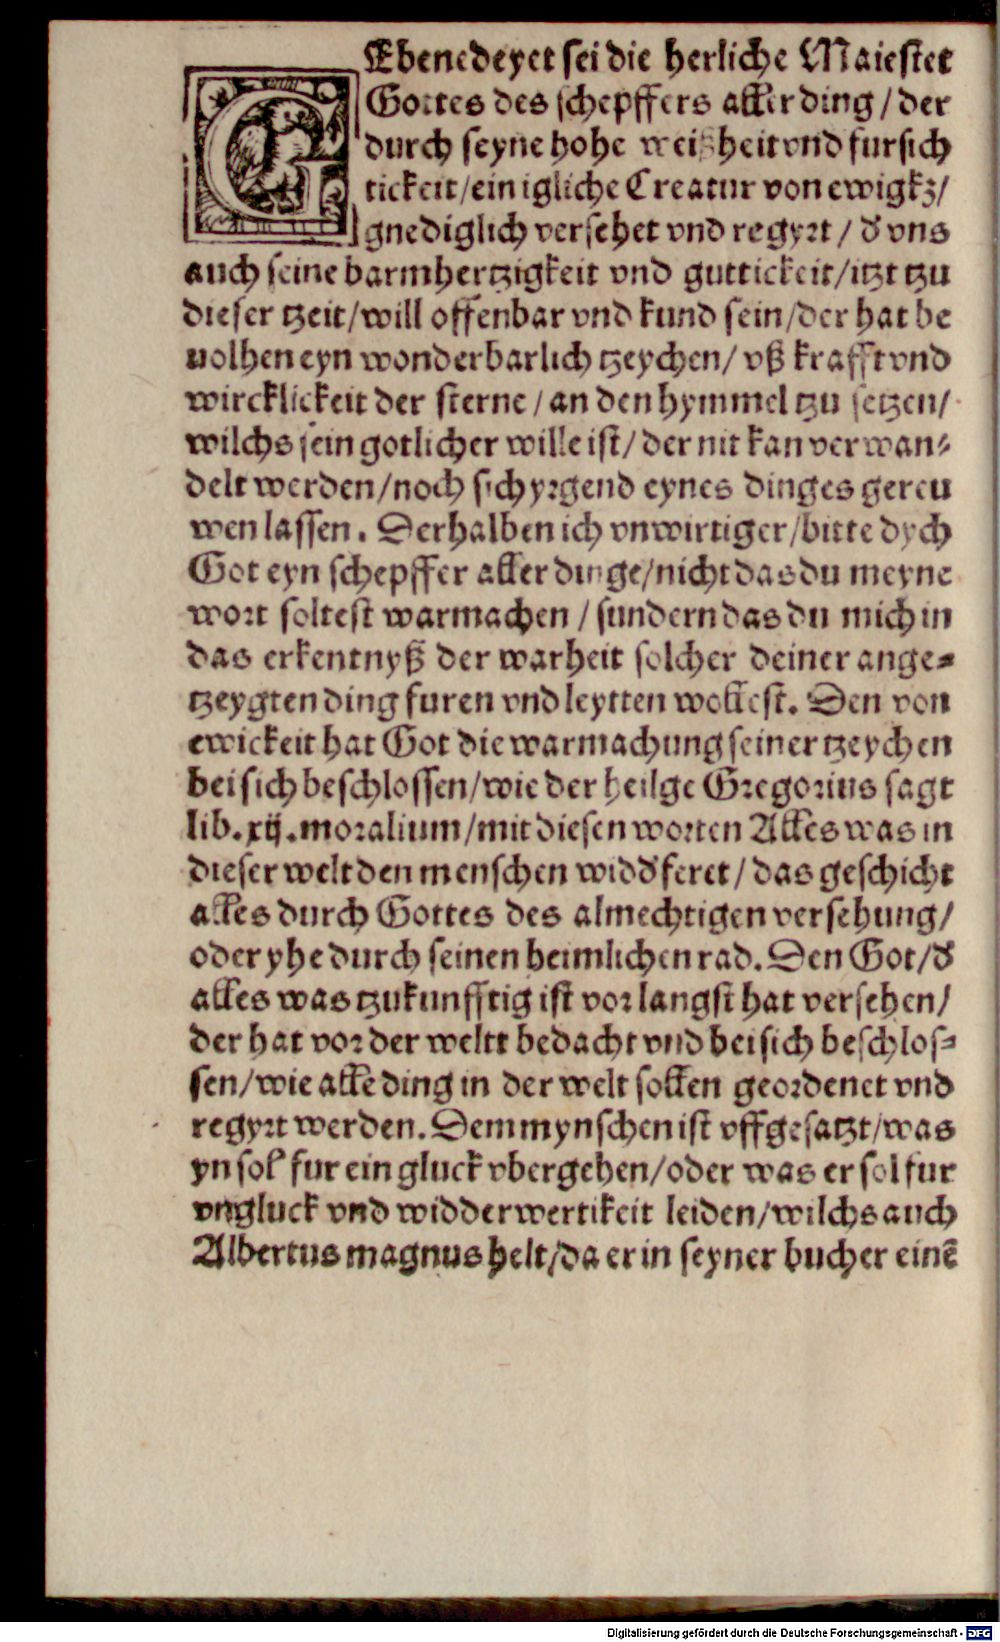 GEbenedeyet sei die herliche Maiestet
Gottes des schepffers aller ding / der
durch seyne hohe weißheit vnd fursich
tickeit/ein igliche Creatur von ewigkꝫ/
gnediglich versehet vnd regyrt / d' vns
auch seine barmhertzigkeit vnd guttickeit/itzt tzu
dieser tzeit/will offenbar vnd kund sein/der hat be
uolhen eyn wonderbarlich tzeychen/ vß krafft vnd
wircklickeit der sterne / an den hymmel tzu setzen/
wilchs sein gotlicher wille ist/ der nit kan verwan⸗
delt werden/noch sich yrgend eynes dinges gereu
wen lassen. Derhalben ich vnwirtiger/bitte dych
Got eyn schepffer aller dinge/nicht das du meyne
wort soltest warmachen / sundern das du mich in
das erkentnyß der warheit solcher deiner ange⸗
tzeygten ding furen vnd leytten wollest. Den von
ewickeit hat Got die warmachung seiner tzeychen
bei sich beschlossen/wie der heilge Gregorius sagt
lib. xij. moralium/mit diesen worten Alles was in
dieser welt den menschen widd'feret/ das geschicht
alles durch Gottes des almechtigen versehung/
oder yhe durch seinen heimlichen rad. Den Got/d'
alles was tzukunfftig ist vorlangst hat versehen/
der hat vor der weltt bedacht vnd bei sich beschlos⸗
sen/wie alle ding in der welt sollen geordenet vnd
regyrt werden. Dem mynschen ist vffgesatzt/was
yn sol fur ein gluck vbergehen/oder was er sol fur
vngluck vnd widderwertikeit leiden/wilchs auch
Albertus magnus helt/da er in seyner bucher einē
Digitalisierung gefördert durch die Deutsche Forschungsgemeinschaft - DFG